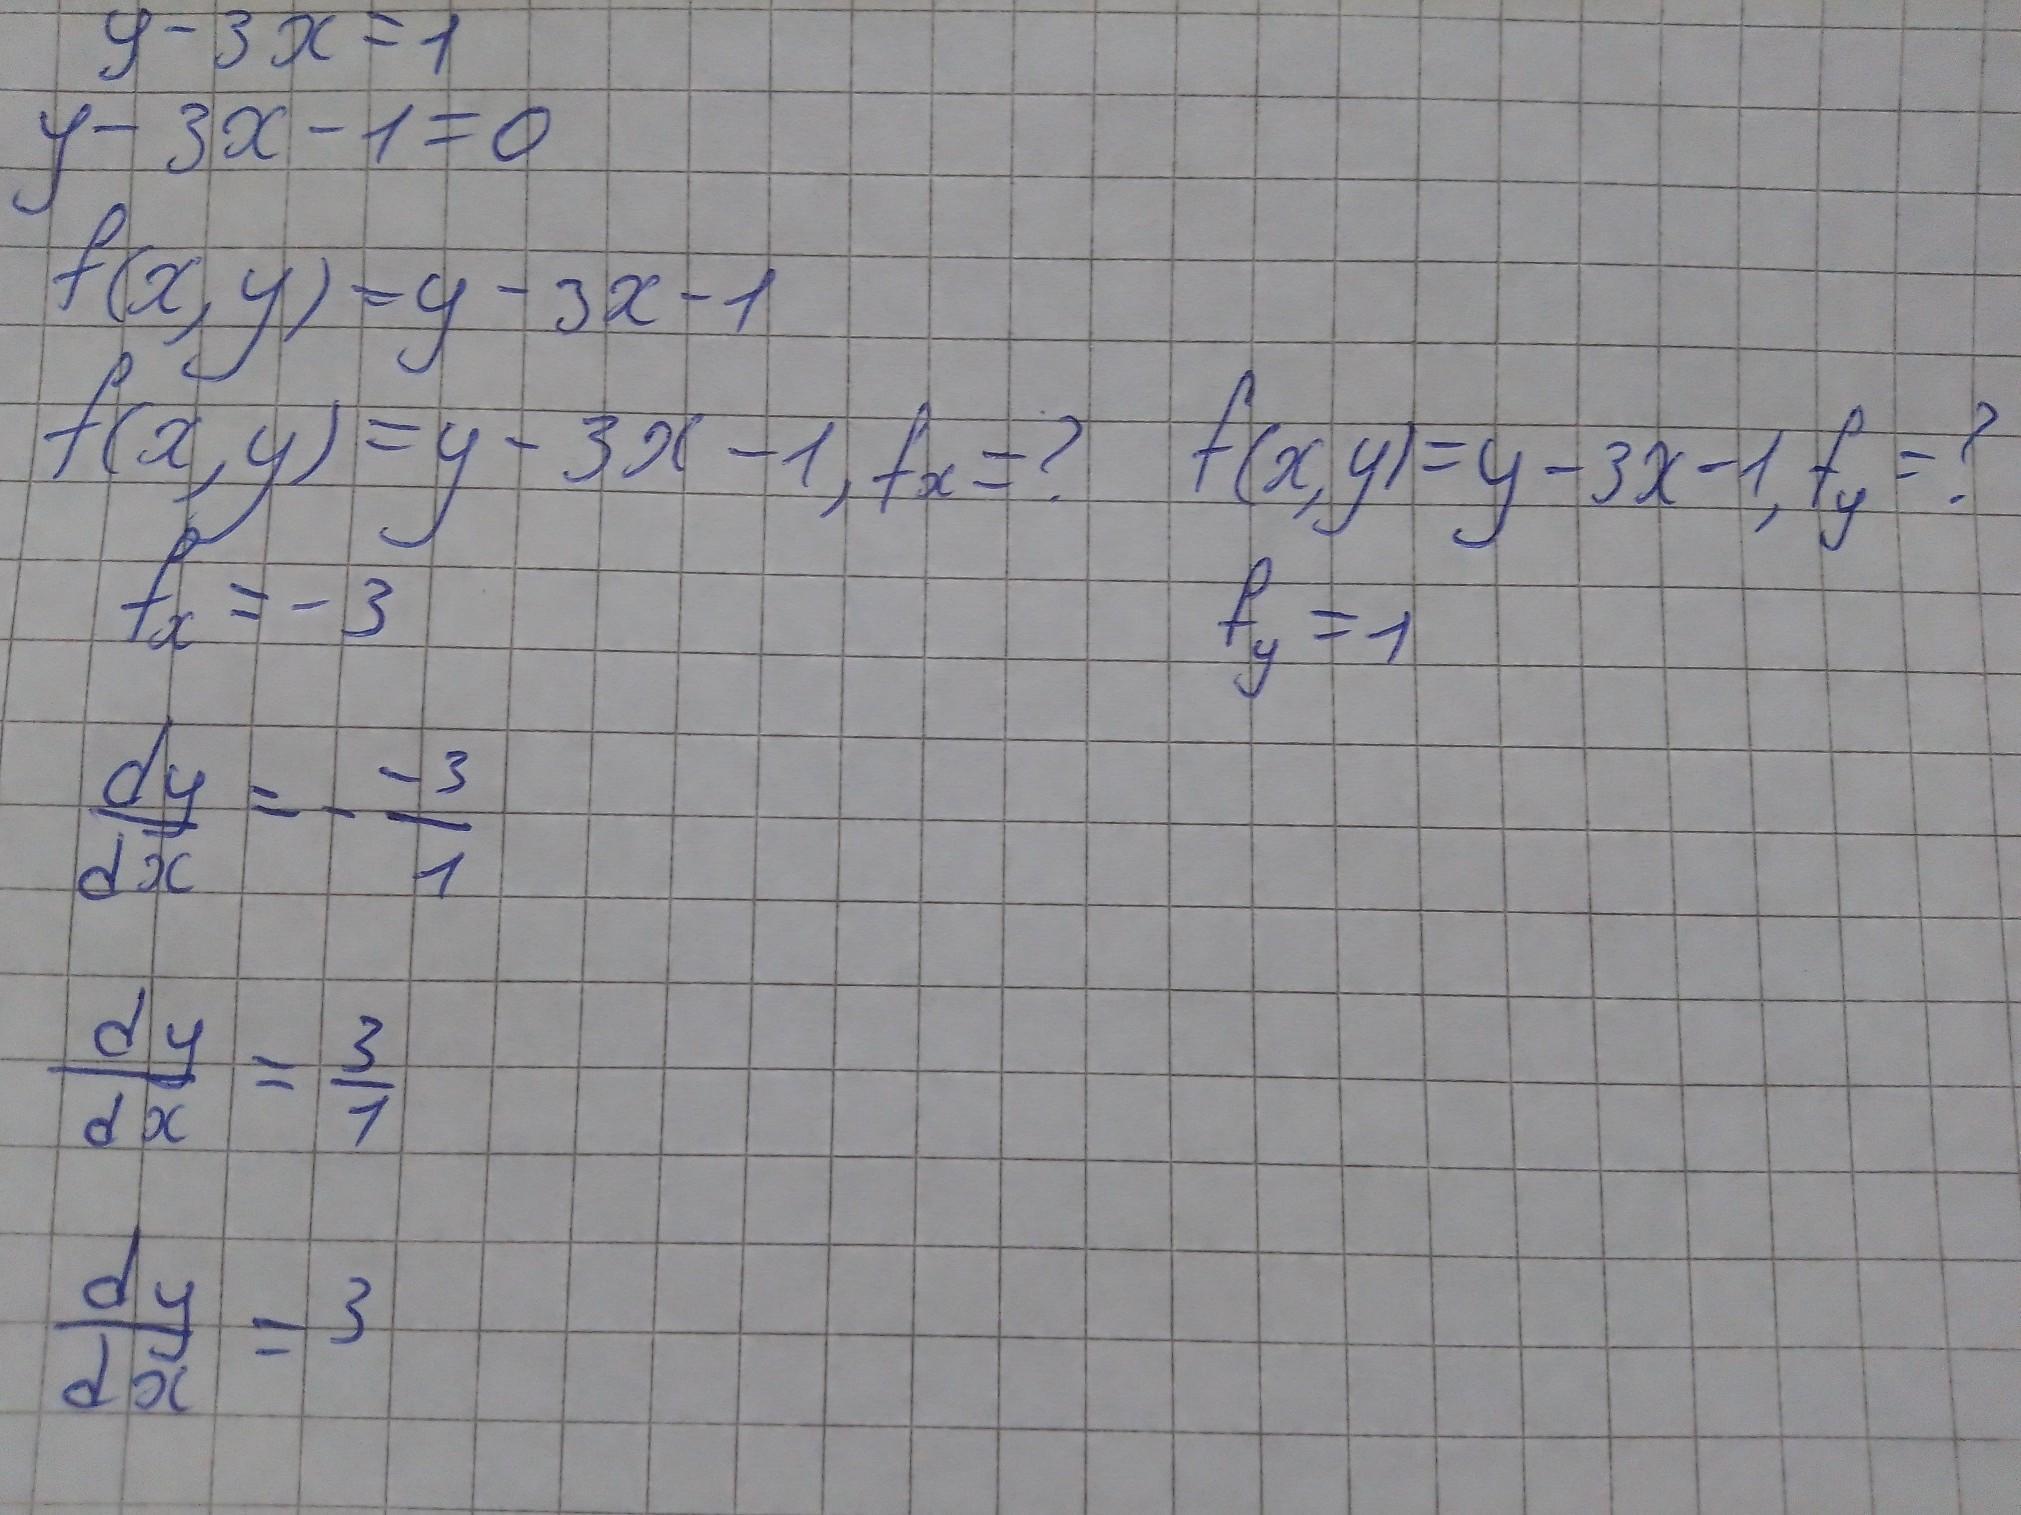 y - 3x = 1
y - 3x - 1 = 0
f(x, y) = y - 3x - 1
f(x, y) = y - 3x - 1, fₓ = ? f(x, y) = y - 3x - 1, f_y = ?
fₓ = -3 f_y = 1
dy/dx = - -3/1
dy/dx = 3/1
dy/dx = 3